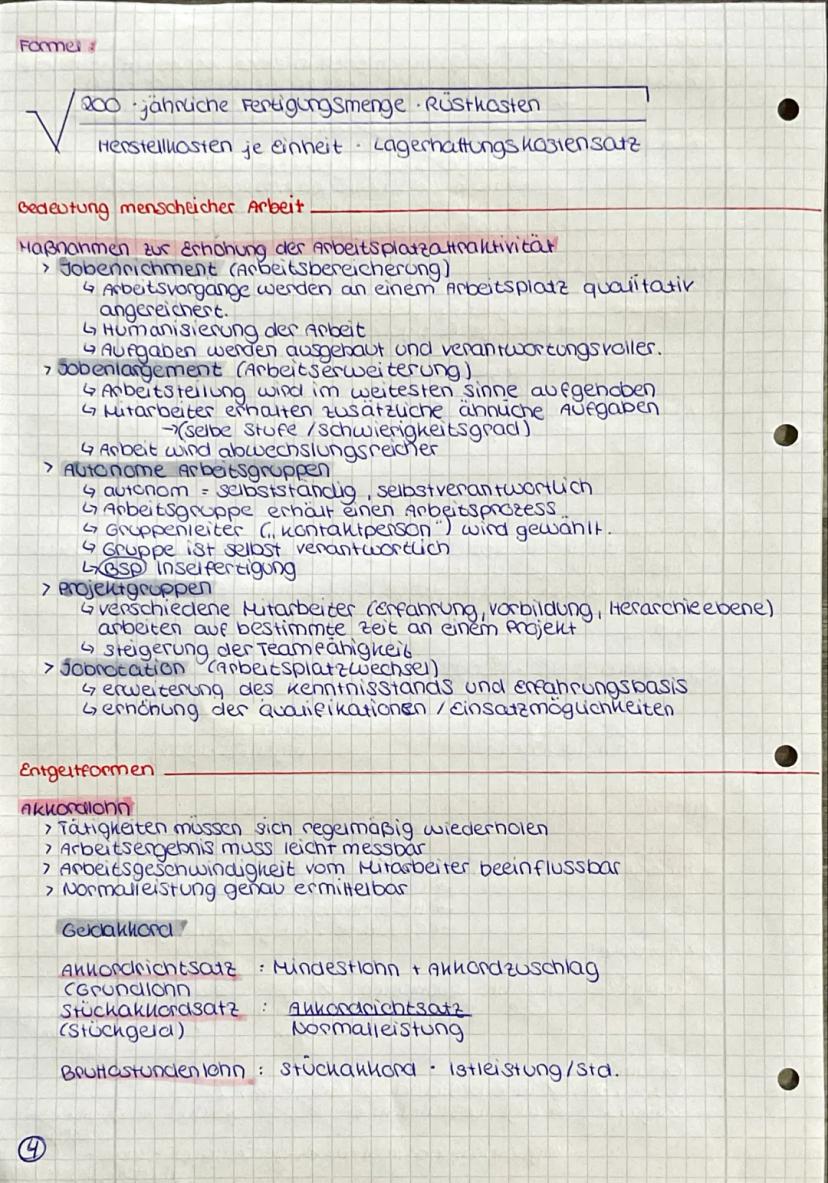 Formel:
200 · jährliche Fertigungsmenge · Rüstkosten
Herstellkosten je Einheit · Lagerhaltungskostensatz
Bedeutung menschlicher Arbeit
Maßnahmen zur Erhöhung der Arbeitsplatzattraktivität
> Jobenrichment (Arbeitsbereicherung)
↳ Arbeitsvorgänge werden an einem Arbeitsplatz qualitativ
angereichert.
↳ Humanisierung der Arbeit
↳ Aufgaben werden ausgebaut und verantwortungsvoller.
> Jobenlargement (Arbeitserweiterung)
↳ Arbeitsteilung wird im weitesten Sinne aufgehoben
↳ Mitarbeiter erhalten zusätzliche ähnliche Aufgaben
→ (selbe Stufe / Schwierigkeitsgrad)
↳ Arbeit wird abwechslungsreicher
> Autonome Arbeitsgruppen
↳ autonom = selbstständig, selbstverantwortlich
↳ Arbeitsgruppe erhält einen Arbeitsprozess
↳ Gruppenleiter („Kontaktperson") wird gewählt.
↳ Gruppe ist selbst verantwortlich
↳ BSP Inselfertigung
> Projektgruppen
↳ verschiedene Mitarbeiter (Erfahrung, Vorbildung, Herarchieebene)
arbeiten auf bestimmte Zeit an einem Projekt
↳ Steigerung der Teamfähigkeit
> Jobrotation (Arbeitsplatzwechsel)
↳ Erweiterung des Kenntnisstands und Erfahrungsbasis
↳ Erhöhung der Qualifikationen / Einsatzmöglichkeiten
Entgeltformen
Akkordlohn
> Tätigkeiten müssen sich regelmäßig wiederholen
> Arbeitsergebnis muss leicht messbar
> Arbeitsgeschwindigkeit vom Mitarbeiter beeinflussbar
> Normalleistung genau ermittelbar
Geldakkord
Akkordrichtsatz : Mindestlohn + Akkordzuschlag
(Grundlohn
Stückakkordsatz : Akkordrichtsatz
(Stückgeld) Normalleistung
Bruttostundenlohn : Stückakkord · Istleistung/Std.
4